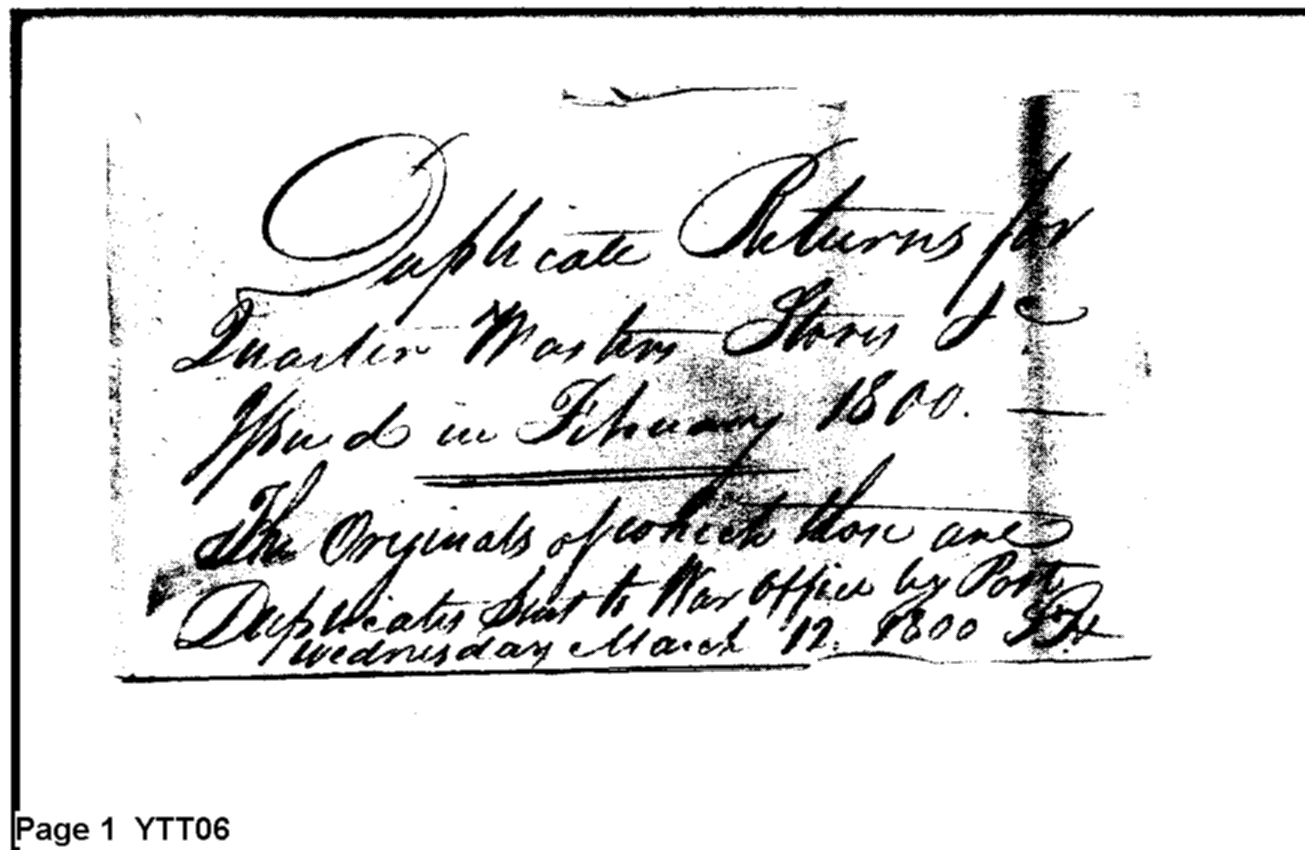 Duplicate Returns for
Quarter Masters Stores &c
Issued in February 1800.
The Originals of which those are
Duplicates Sent to War Office by Post
Wednesday March 12. 1800
Page 1 YTT06